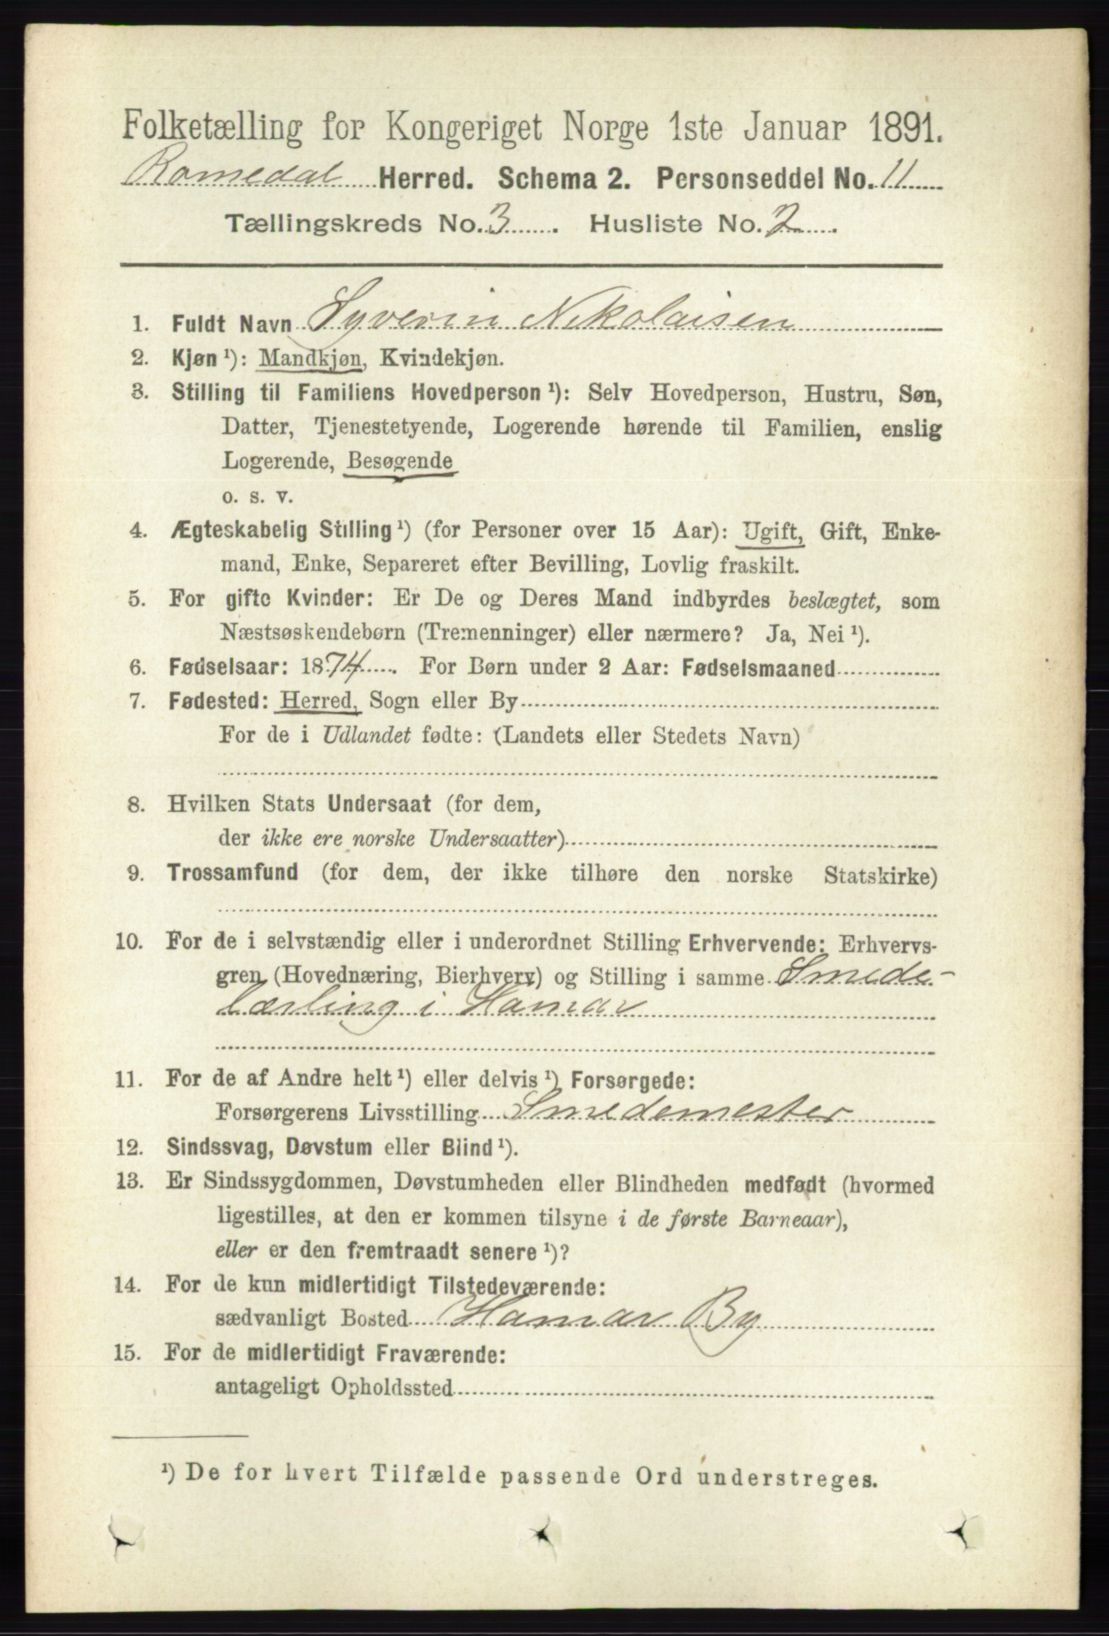 Folketælling for Kongeriget Norge 1ste Januar 1891.
Romedal Herred. Schema 2. Personseddel No. 11
Tællingskreds No. 3. Husliste No. 2.
1. Fuldt Navn Syverin Nikolaisen
2. Kjøn ¹): Mandkjøn, Kvindekjøn.
3. Stilling til Familiens Hovedperson ¹): Selv Hovedperson, Hustru, Søn,
Datter, Tjenestetyende, Logerende hørende til Familien, enslig
Logerende, Besøgende
o. s. v.
4. Ægteskabelig Stilling ¹) (for Personer over 15 Aar): Ugift, Gift, Enke-
mand, Enke, Separeret efter Bevilling, Lovlig fraskilt.
5. For gifte Kvinder: Er De og Deres Mand indbyrdes beslægtet, som
Næstsøskendebørn (Tremenninger) eller nærmere? Ja, Nei ¹).
6. Fødselsaar: 1874. For Børn under 2 Aar: Fødselsmaaned
7. Fødested: Herred, Sogn eller By
For de i Udlandet fødte: (Landets eller Stedets Navn)
8. Hvilken Stats Undersaat (for dem,
der ikke ere norske Undersaatter)
9. Trossamfund (for dem, der ikke tilhøre den norske Statskirke)
10. For de i selvstændig eller i underordnet Stilling Erhvervende: Erhvervs-
gren (Hovednæring, Bierhverv) og Stilling i samme Smede-
lærling i Hamar
11. For de af Andre helt ¹) eller delvis ¹) Forsørgede:
Forsørgerens Livsstilling Smedemester
12. Sindssvag, Døvstum eller Blind ¹).
13. Er Sindssygdommen, Døvstumheden eller Blindheden medfødt (hvormed
ligestilles, at den er kommen tilsyne i de første Barneaar),
eller er den fremtraadt senere ¹)?
14. For de kun midlertidigt Tilstedeværende:
sædvanligt Bosted Hamar By
15. For de midlertidigt Fraværende:
antageligt Opholdssted
¹) De for hvert Tilfælde passende Ord understreges.